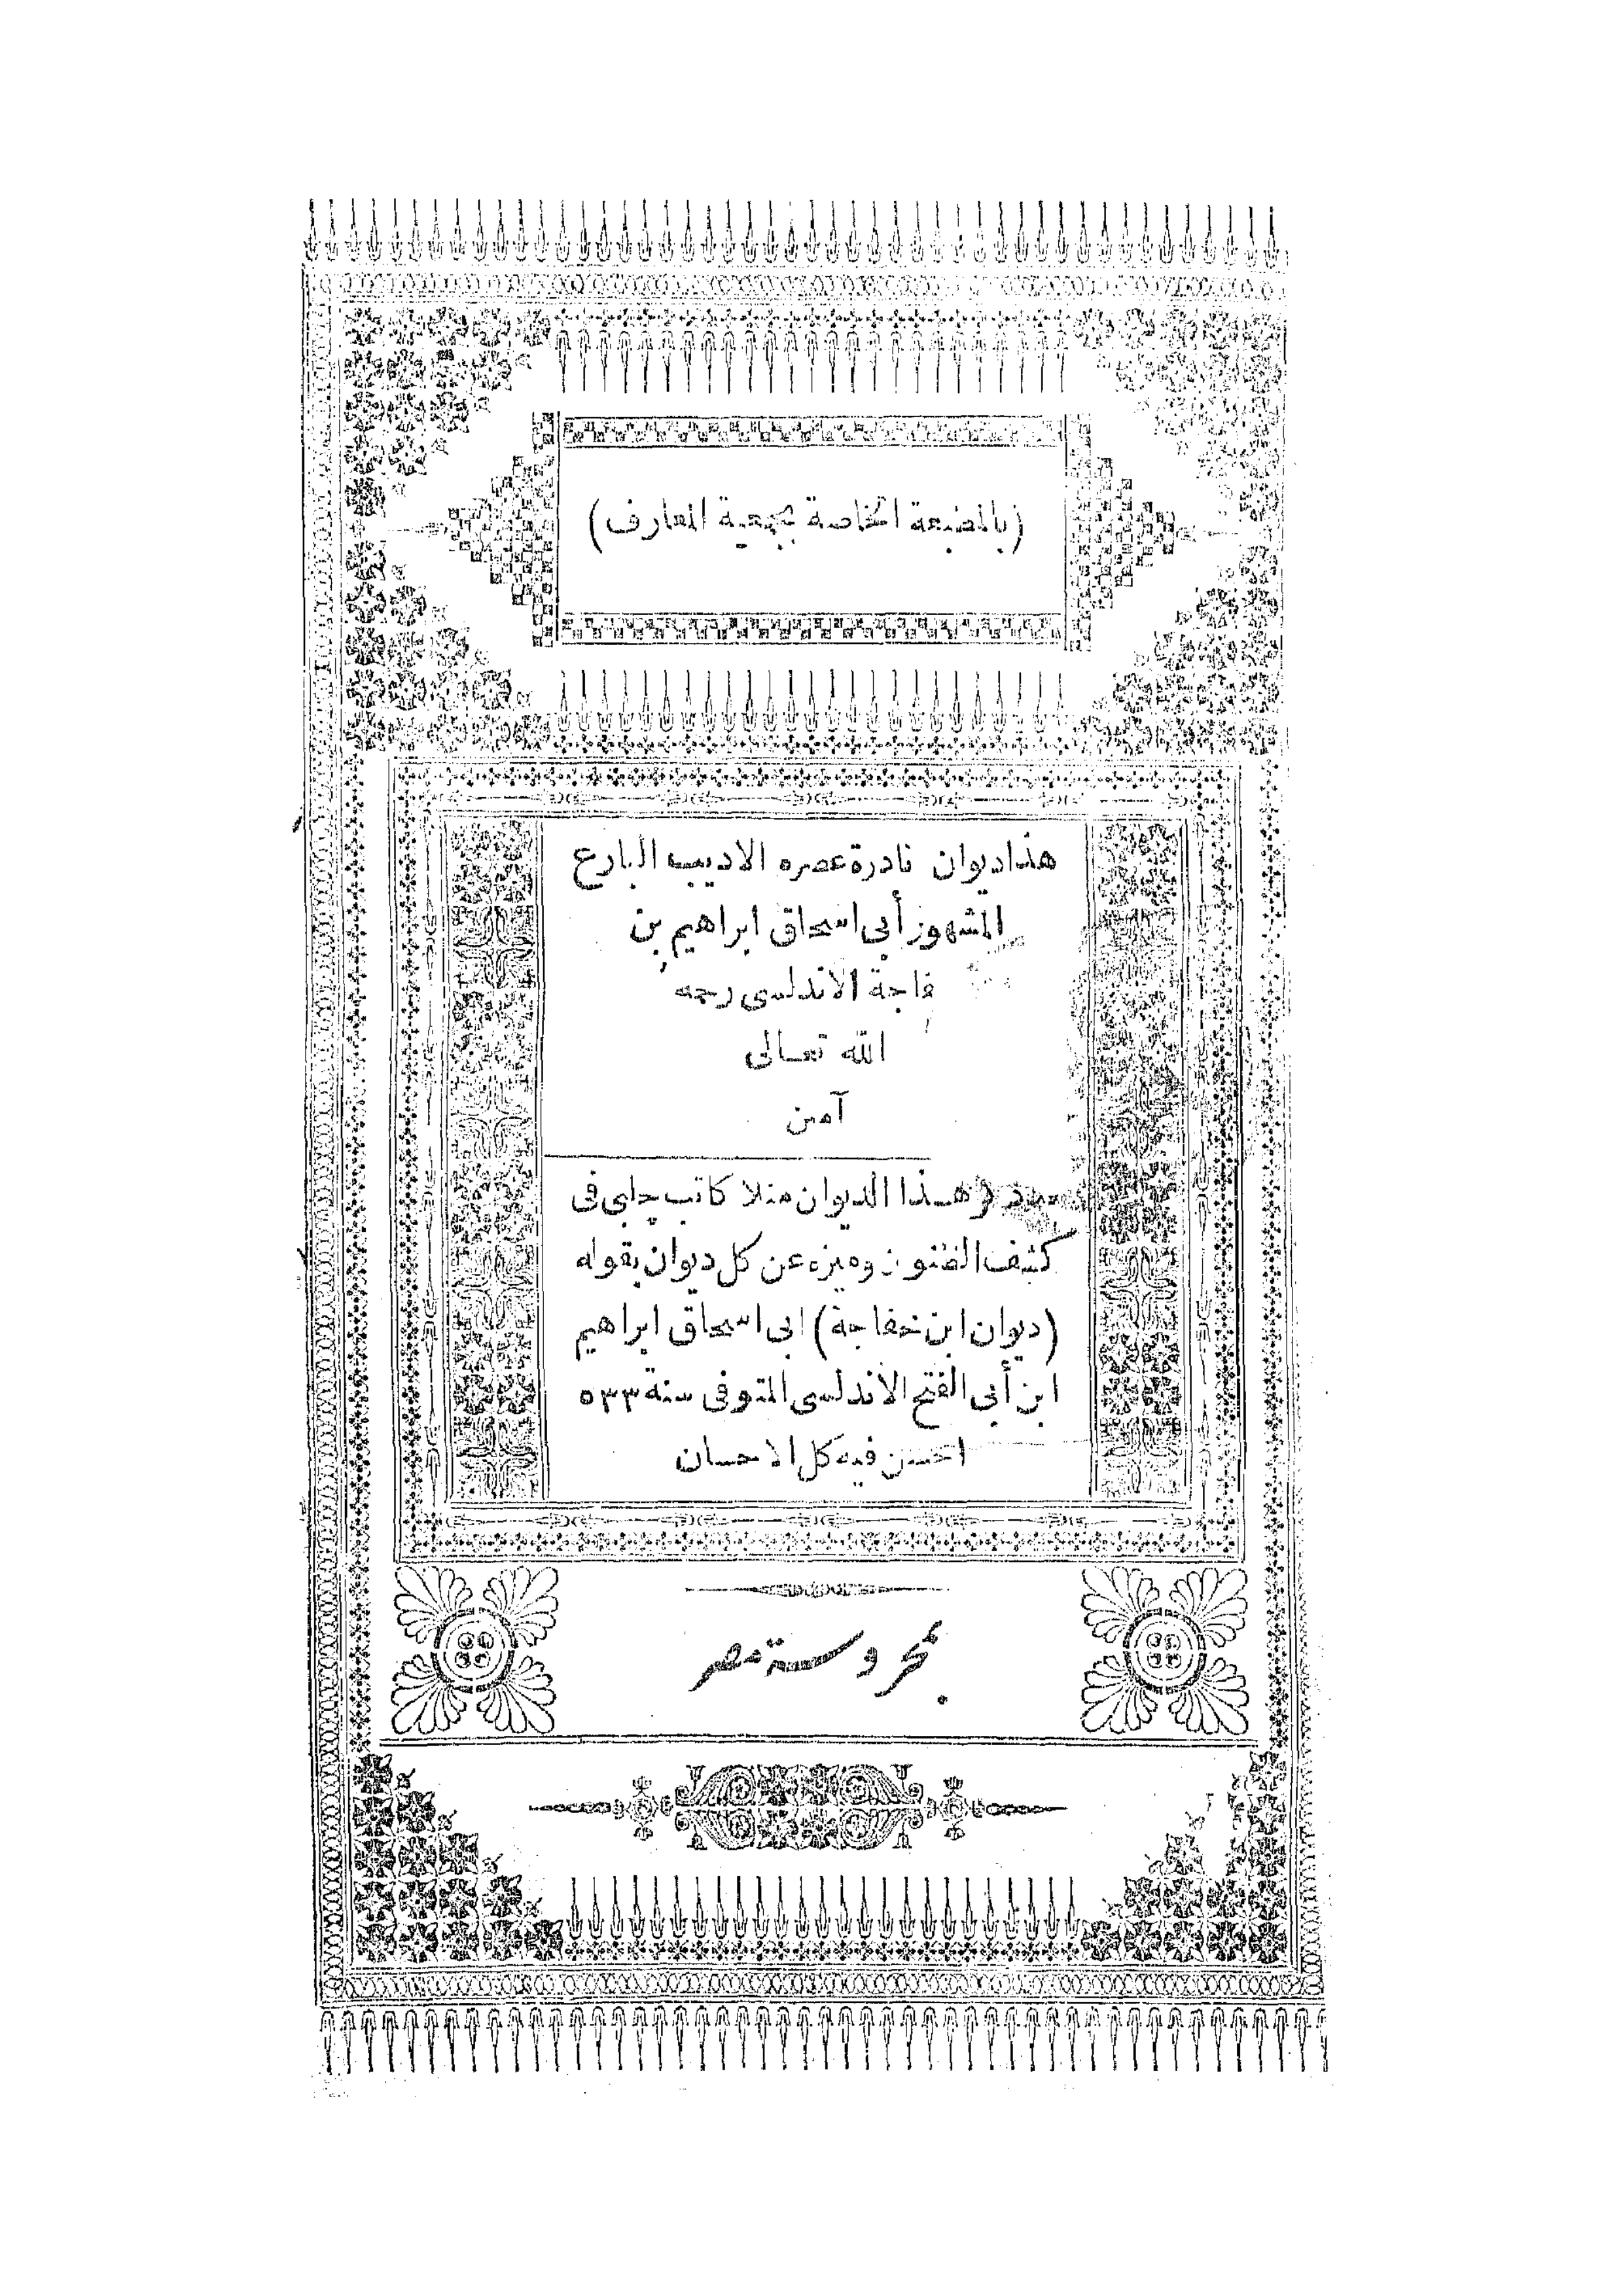 (بالمطبعة الخاصة بجمعية المعارف)
هذا ديوان نادرة عصره الاديب البارع
المشهور أبى اسحاق ابراهيم بن
فاجة الاندلسى رحمه
الله تعالى
آمين
هذا الديوان منلا كاتب چلبى فى
كشف الظنون وميزه عن كل ديوان بقوله
(ديوان ابن خفاجة) ابى اسحاق ابراهيم
ابن أبى الفتح الاندلسى المتوفى سنة ٥٣٣
احسن فيه كل الاحسان
بمحروسة مصر